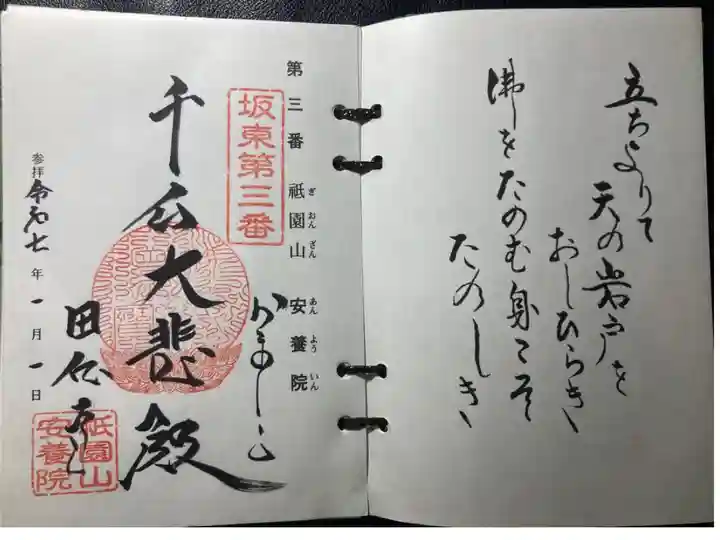 立ちよりて
天の岩戸を
おしひらき
佛をたのむ身こそ
たのしき
第三番 祇園山 安養院
ぎおんざん あんよういん
坂東第三番
かまくら
千手大悲殿
田代寺
祇園山
安養院
参拝 令和七年一月一日